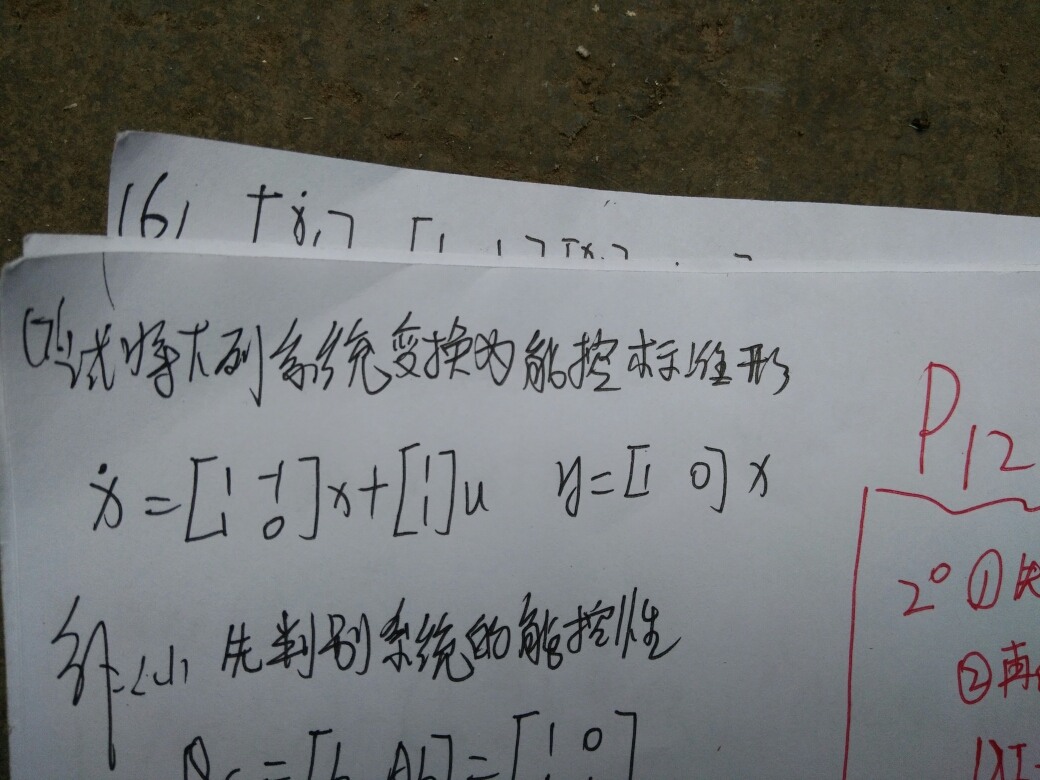 (6)
(7) 试将下列系统变换为能控标准形
ẋ = [1 -1; 1 0] x + [1; 1] u   y = [1 0] x
解: (1) 先判别系统的能控性
Qc = [b Ab] = [1 0
P12
2° ① 先
② 再
|λI-